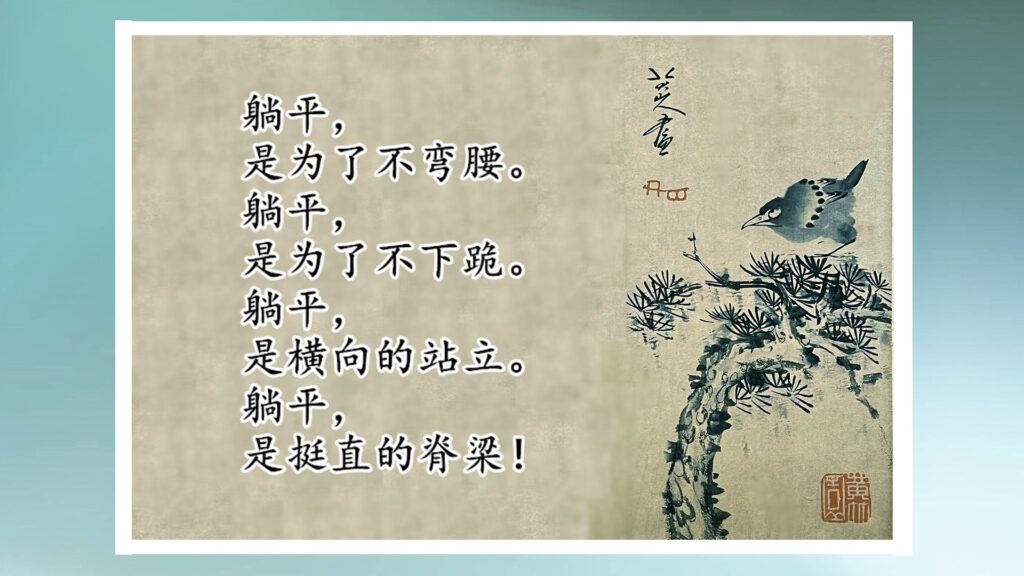 躺平，
是为了不弯腰。
躺平，
是为了不下跪。
躺平，
是横向的站立。
躺平，
是挺直的脊梁！
八大山人画